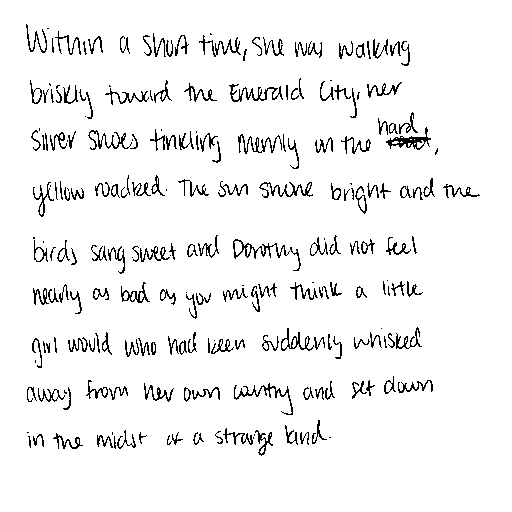 Within a short time, she was walking
briskly toward the Emerald City, her
Silver Shoes tinkling merrily on the hard,
yellow roadbed. The sun shone bright and the
birds sang sweet and Dorothy did not feel
nearly as bad as you might think a little
girl would who had been suddenly whisked
away from her own country and set down
in the midst of a strange land.